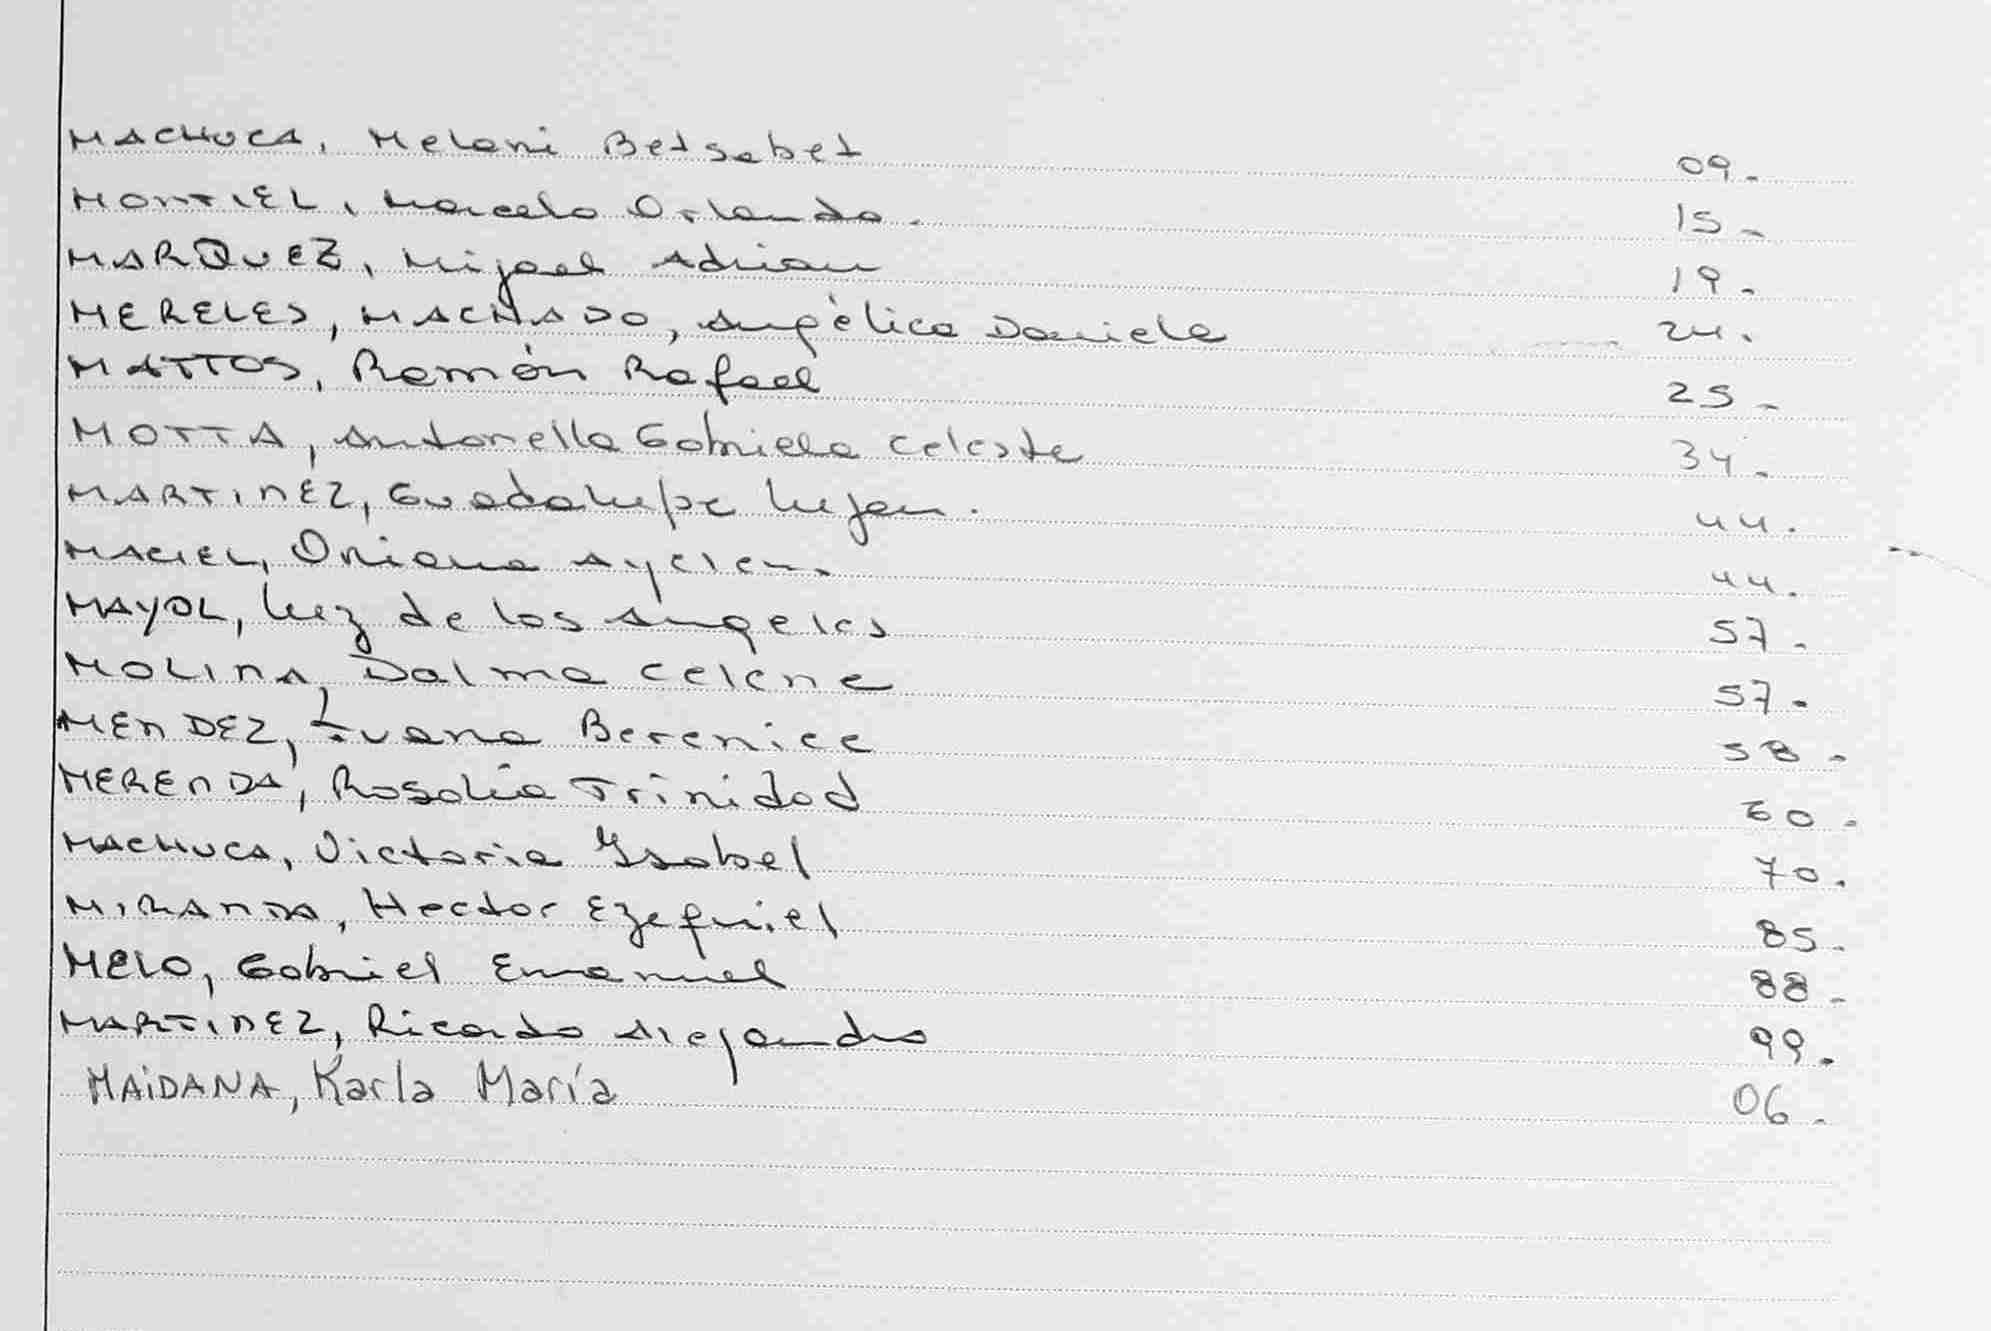 MACHUCA, Melani Betsabet 09.-
MONTIEL, Marcelo Orlando. 15-
MARQUEZ, Miguel Adrian 19.-
MERELES, MACHADO, Angélica Daniela 24.
MATTOS, Ramón Rafael 25-
MOTTA, Antonella Gabriela Celeste 34.-
MARTINEZ, Guadalupe Lujan. 44.
MACIEL, Oriana Ayelen. 44.
MAYOL, Luz de los Angeles 57.-
MOLINA, Dalma Celene 57.-
MENDEZ, Ivana Berenice 58.-
MERENDA, Rosalia Trinidad 60.-
MACHUCA, Victoria Ysabel 70.
MIRANDA, Hector Ezequiel 85.-
MELO, Gabriel Emanuel 88.-
MARTINEZ, Ricardo Alejandro 99.
MAiDANA, Karla María 06.-